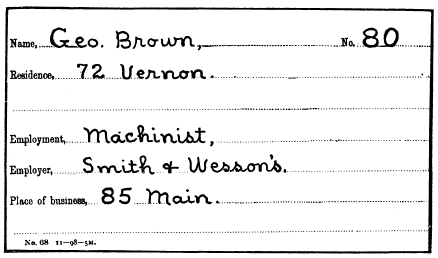 Name, Geo. Brown, No. 80
Residence, 72 Vernon.
Employment, Machinist,
Employer, Smith & Wesson's.
Place of business, 85 Main.
No. 68 11-98-5M.